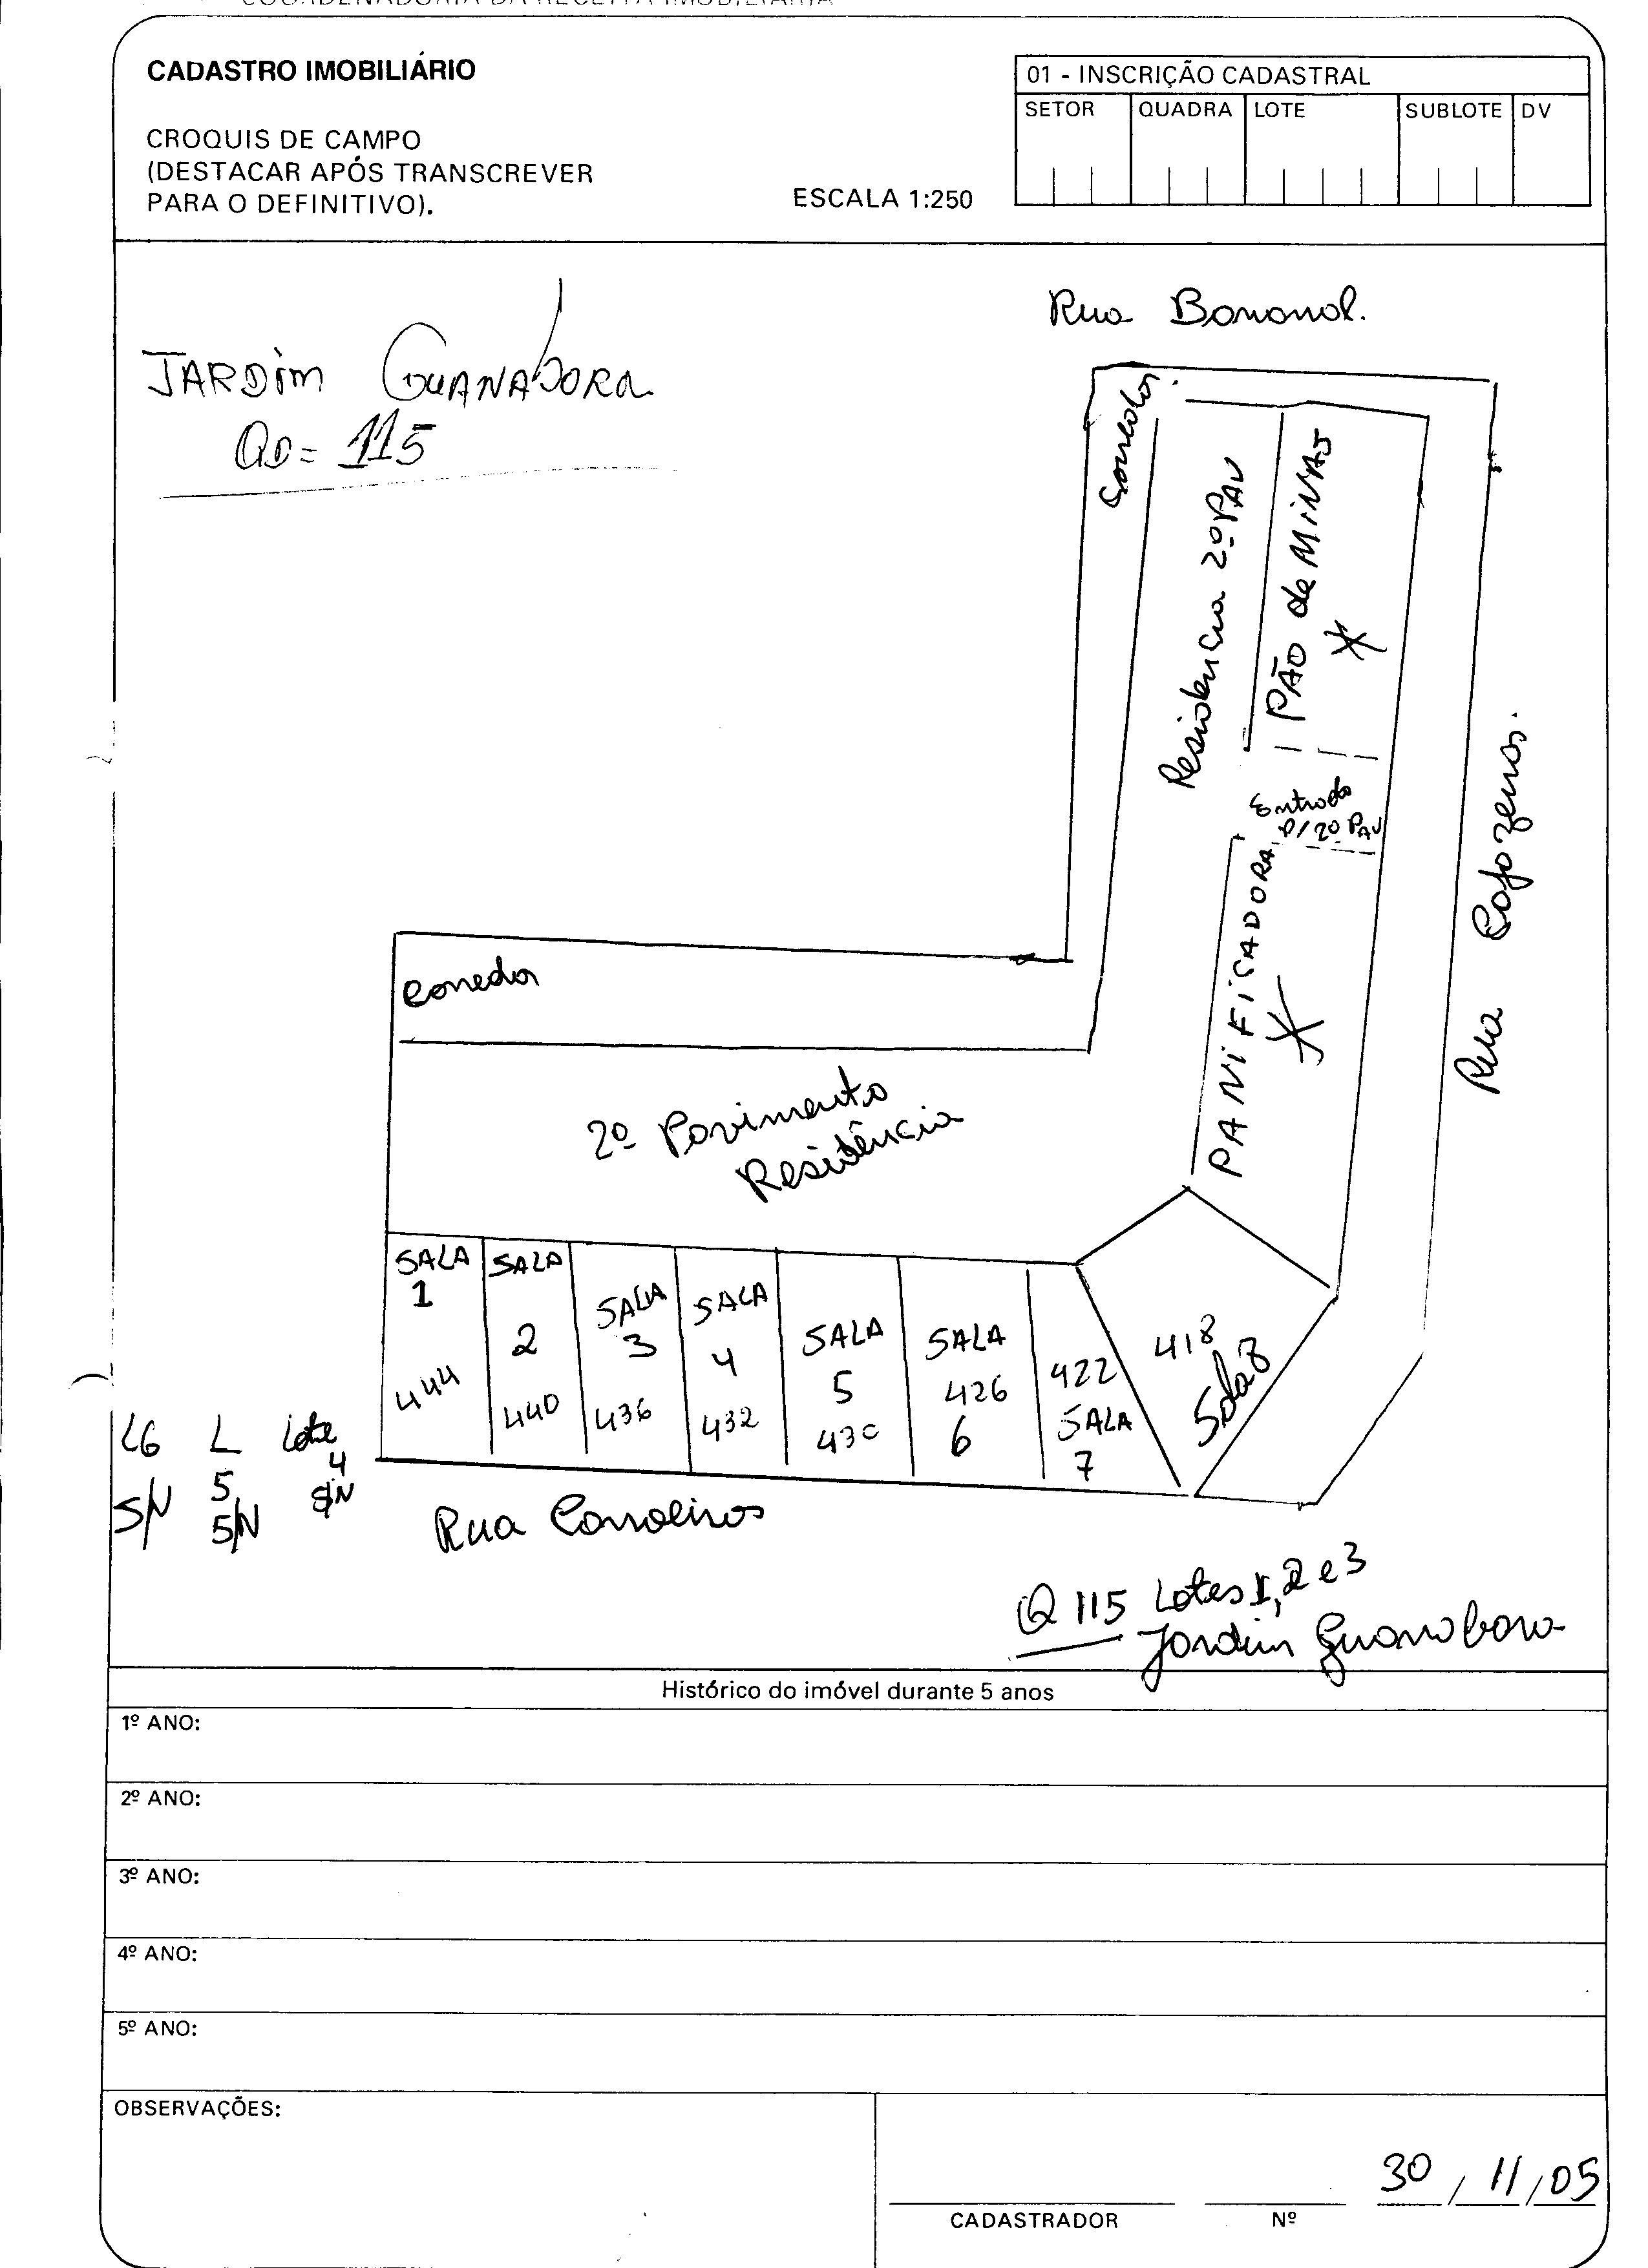 COORDENADORIA DA RECEITA IMOBILIÁRIA
CADASTRO IMOBILIÁRIO
CROQUIS DE CAMPO
(DESTACAR APÓS TRANSCREVER
PARA O DEFINITIVO).
ESCALA 1:250
01 - INSCRIÇÃO CADASTRAL
SETOR QUADRA LOTE SUBLOTE DV
JARDIM GUANABARA
QD = 115
Rua Bananal.
Corredor
Residencia 2º PAV
PÃO de MINAS
Entrada
P/ 2º PAV
PANIFICADORA
Rua
Corredor
2º Pavimento
Residência
SALA
1
444
SALA
2
440
SALA
3
436
SALA
4
432
SALA
5
430
SALA
426
6
422
SALA
7
418
Sala 8
L6 L Lote
5 4
S/N S/N S/N
Rua Carreiros
Q 115 Lotes 1, 2 e 3
Jardim Guanabara
Histórico do imóvel durante 5 anos
1º ANO:
2º ANO:
3º ANO:
4º ANO:
5º ANO:
OBSERVAÇÕES:
30 / 11 / 05
CADASTRADOR Nº